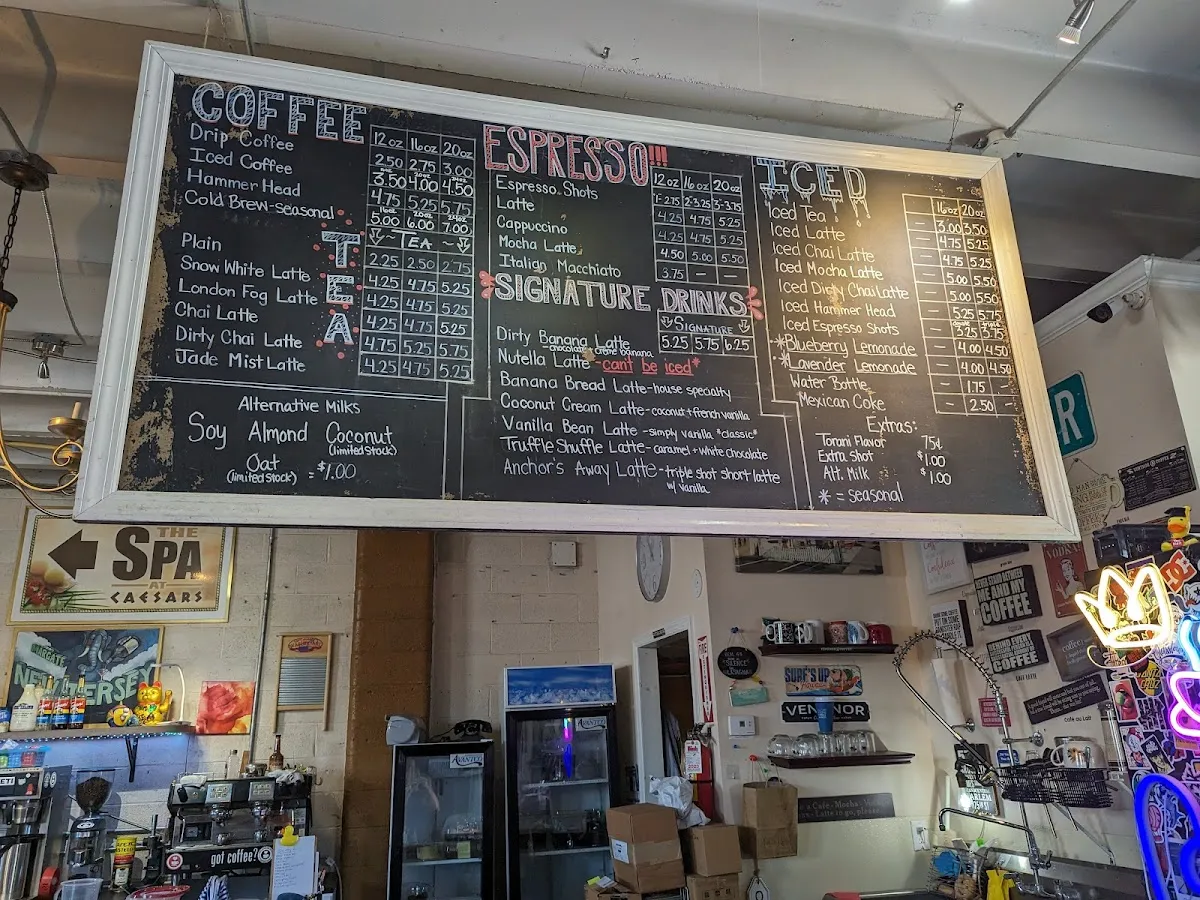 COFFEE
12oz 16oz 20oz
Drip Coffee 2.50 2.75 3.00
Iced Coffee 3.50 4.00 4.50
Hammer Head 4.75 5.25 5.75
16oz 20oz 24oz
Cold Brew-seasonal 5.00 6.00 7.00
TEA
~ TEA ~
Plain 2.25 2.50 2.75
Snow White Latte 4.25 4.75 5.25
London Fog Latte 4.25 4.75 5.25
Chai Latte 4.25 4.75 5.25
Dirty Chai Latte 4.75 5.25 5.75
Jade Mist Latte 4.25 4.75 5.25
Alternative Milks
Soy Almond Coconut
(limited stock)
Oat
(limited stock) = $1.00
ESPRESSO!!!
12oz 16oz 20oz
Espresso Shots 1-2.75 2-3.25 3-3.75
Latte 4.25 4.75 5.25
Cappuccino 4.25 4.75 5.25
Mocha Latte 4.50 5.00 5.50
Italian Macchiato 3.75 — —
SIGNATURE DRINKS
SIGNATURE
5.25 5.75 6.25
Dirty Banana Latte
-chocolate+creme banana
Nutella Latte -can't be iced*
Banana Bread Latte-house specialty
Coconut Cream Latte-coconut+french vanilla
Vanilla Bean Latte-simply vanilla *classic*
Truffle Shuffle Latte-caramel+white chocolate
Anchor's Away Latte-triple shot short latte
w/ vanilla
ICED
16oz 20oz
Iced Tea - 3.00 3.50
Iced Latte - 4.75 5.25
Iced Chai Latte - 4.75 5.25
Iced Mocha Latte - 5.00 5.50
Iced Dirty Chai Latte - 5.00 5.50
Iced Hammer Head - 5.25 5.75
double triple
Iced Espresso Shots - 3.25 3.75
*Blueberry Lemonade - 4.00 4.50
*Lavender Lemonade - 4.00 4.50
Water Bottle - 1.75 -
Mexican Coke - 2.50 -
Extras:
Torani Flavor 75¢
Extra Shot $1.00
Alt. Milk $1.00
* = seasonal
THE
SPA
AT
CAESARS
MARGATE
NEW JERSEY
got coffee?
AVANTCO
AVANTCO
SILENCE
SURF'S UP
VENTNOR
VODKA
ME AND MY
COFFEE
BEHIND EVERY
COFFEE
café au lait
R